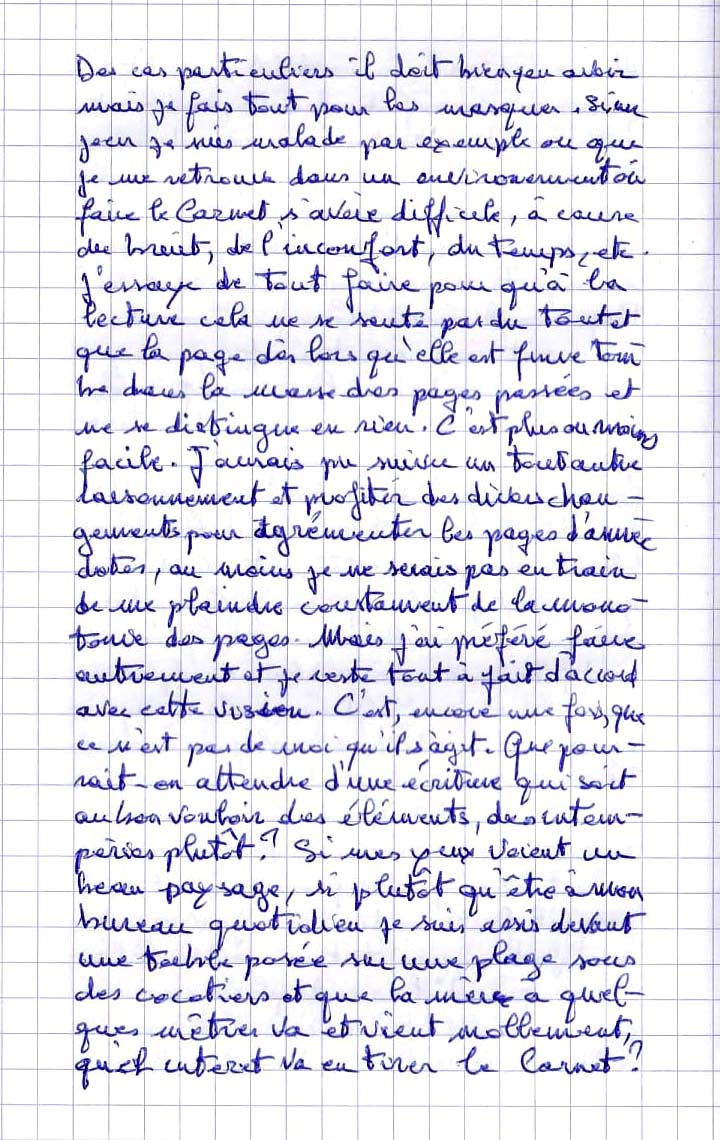 Des cas particuliers il doit bien y en avoir
mais je fais tout pour les masquer. Si un
jour je suis malade par exemple ou que
je me retrouve dans un environnement où
faire le Carnet s'avère difficile, à cause
du bruit, de l'inconfort, du temps, etc.
J'essaye de tout faire pour qu'à la
lecture cela ne se sente pas du tout et
que la page dès lors qu'elle est finie tom
be dans la masse des pages passées et
ne se distingue en rien. C'est plus ou moins
facile. J'aurais pu suivre un tout autre
raisonnement et profiter des divers chan-
gements pour agrémenter les pages d'annec
dotes, au moins je ne serais pas en train
de me plaindre constamment de la mono-
tonie des pages. Mais j'ai préféré faire
autrement et je reste tout à fait d'accord
avec cette vision. C'est, encore une fois, que
ce n'est pas de moi qu'il s'agit. Que pour-
rait-on attendre d'une écriture qui soit
au bon vouloir des éléments, des intem-
péries plutôt? Si mes yeux voient un
beau paysage, si plutôt qu'être à mon
bureau quotidien je suis assis devant
une table posée sur une plage sous
des cocotiers et que la mère à quel-
ques mètres va et vient mollement,
quel intéret va en tirer le Carnet?